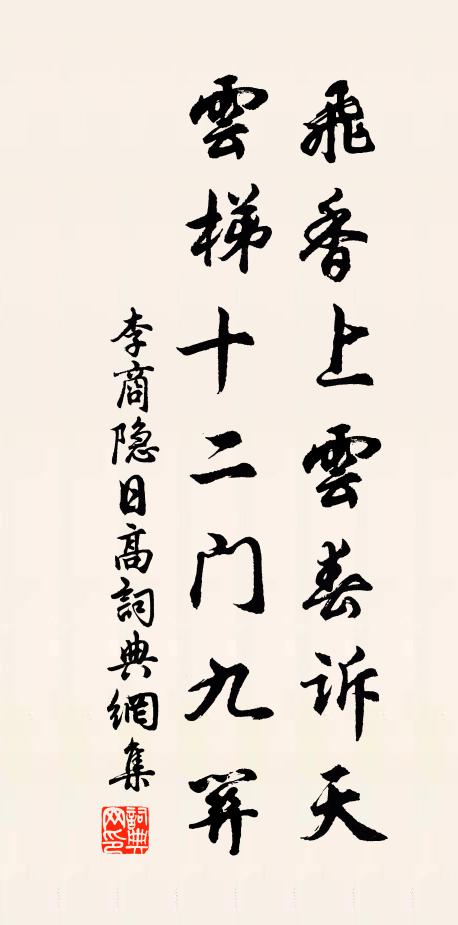 飛香上雲春訴天
雲梯十二门九關
李商隐日高詞典網集
詞典网印